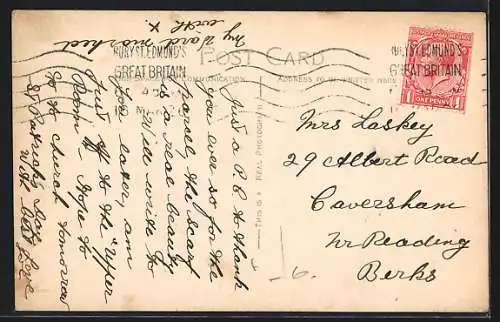 my ward marked
with x.
POST CARD
BURY ST. EDMUND'S
GREAT BRITAIN
BURY ST. EDMUND'S
GREAT BRITAIN
COMMUNICATION
ADDRESS
THIS IS A REAL PHOTOGRAPH
1 ONE PENNY 1
Just a P.C. to thank
you ever so for the
parcel the scarf
is a real beauty
Will write to
you later, am
just off to the "Upper
Room" Hope to
go to church tomorrow
St Patrick's Day
With best love
Mrs Laskey
29 Albert Road
Caversham
Nr Reading
Berks
6.